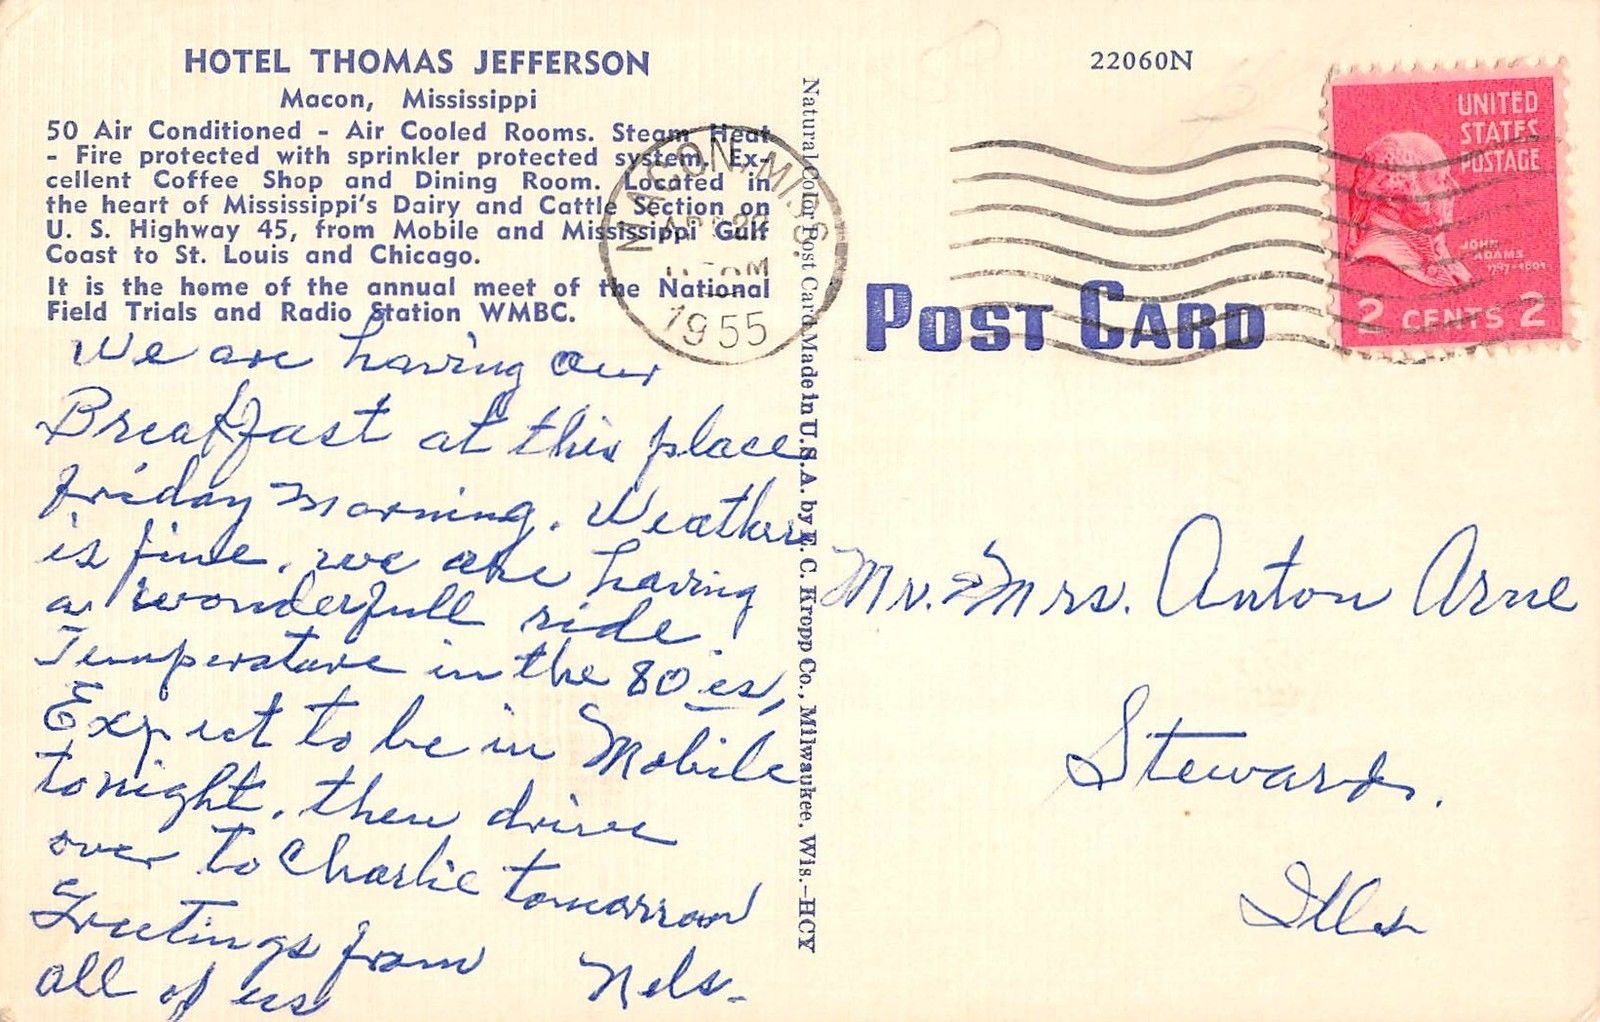 HOTEL THOMAS JEFFERSON
Macon, Mississippi
50 Air Conditioned - Air Cooled Rooms. Steam Heat
- Fire protected with sprinkler protected system. Ex-
cellent Coffee Shop and Dining Room. Located in
the heart of Mississippi's Dairy and Cattle Section on
U. S. Highway 45, from Mobile and Mississippi Gulf
Coast to St. Louis and Chicago.
It is the home of the annual meet of the National
Field Trials and Radio Station WMBC.
We are having our
Breakfast at this place
friday morning. Weather
is fine. we are having
a wonderfull ride
Temperature in the 80 es,
Expect to be in Mobile
tonight. then drive
over to Charlie tomorrow
Greetings from
all of us Nels.
MACON, MISS.
AM
1955
Natural Color Post Card Made in U.S.A. by E. C. Kropp Co., Milwaukee, Wis.-HCY
22060N
UNITED
STATES
POSTAGE
JOHN
ADAMS
1797-1801
2 CENTS 2
POST CARD
Mr. & Mrs. Anton Arne
Steward.
Ills